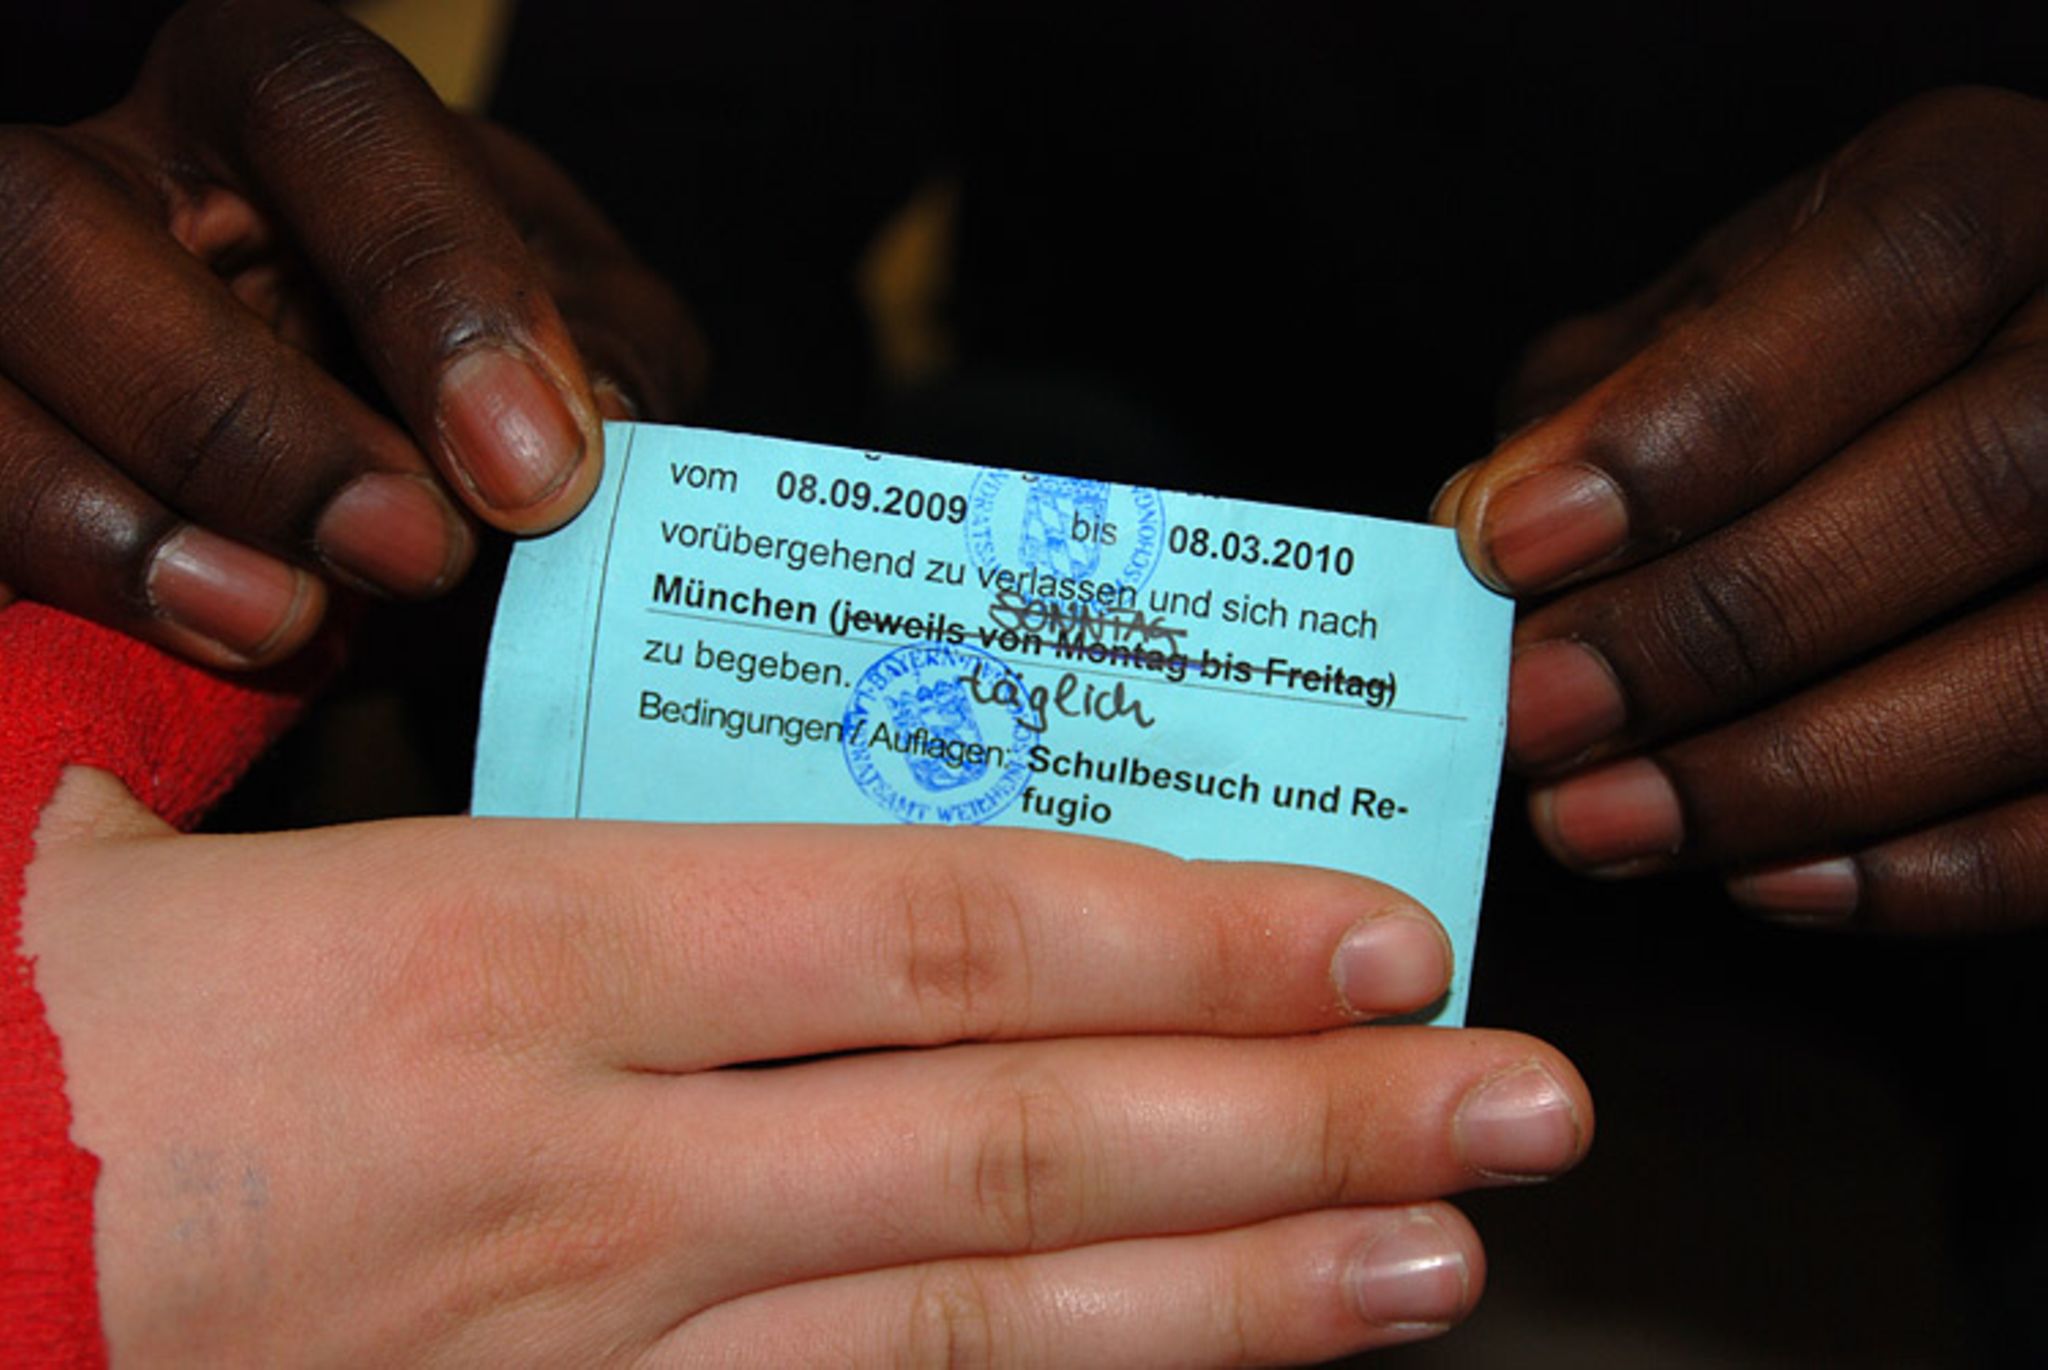 vom 08.09.2009 bis 08.03.2010
vorübergehend zu verlassen und sich nach
SONNTAG
München (jeweils von Montag bis Freitag)
zu begeben. täglich
Bedingungen / Auflagen: Schulbesuch und Re-
fugio
BAYERN
WEILHEIM